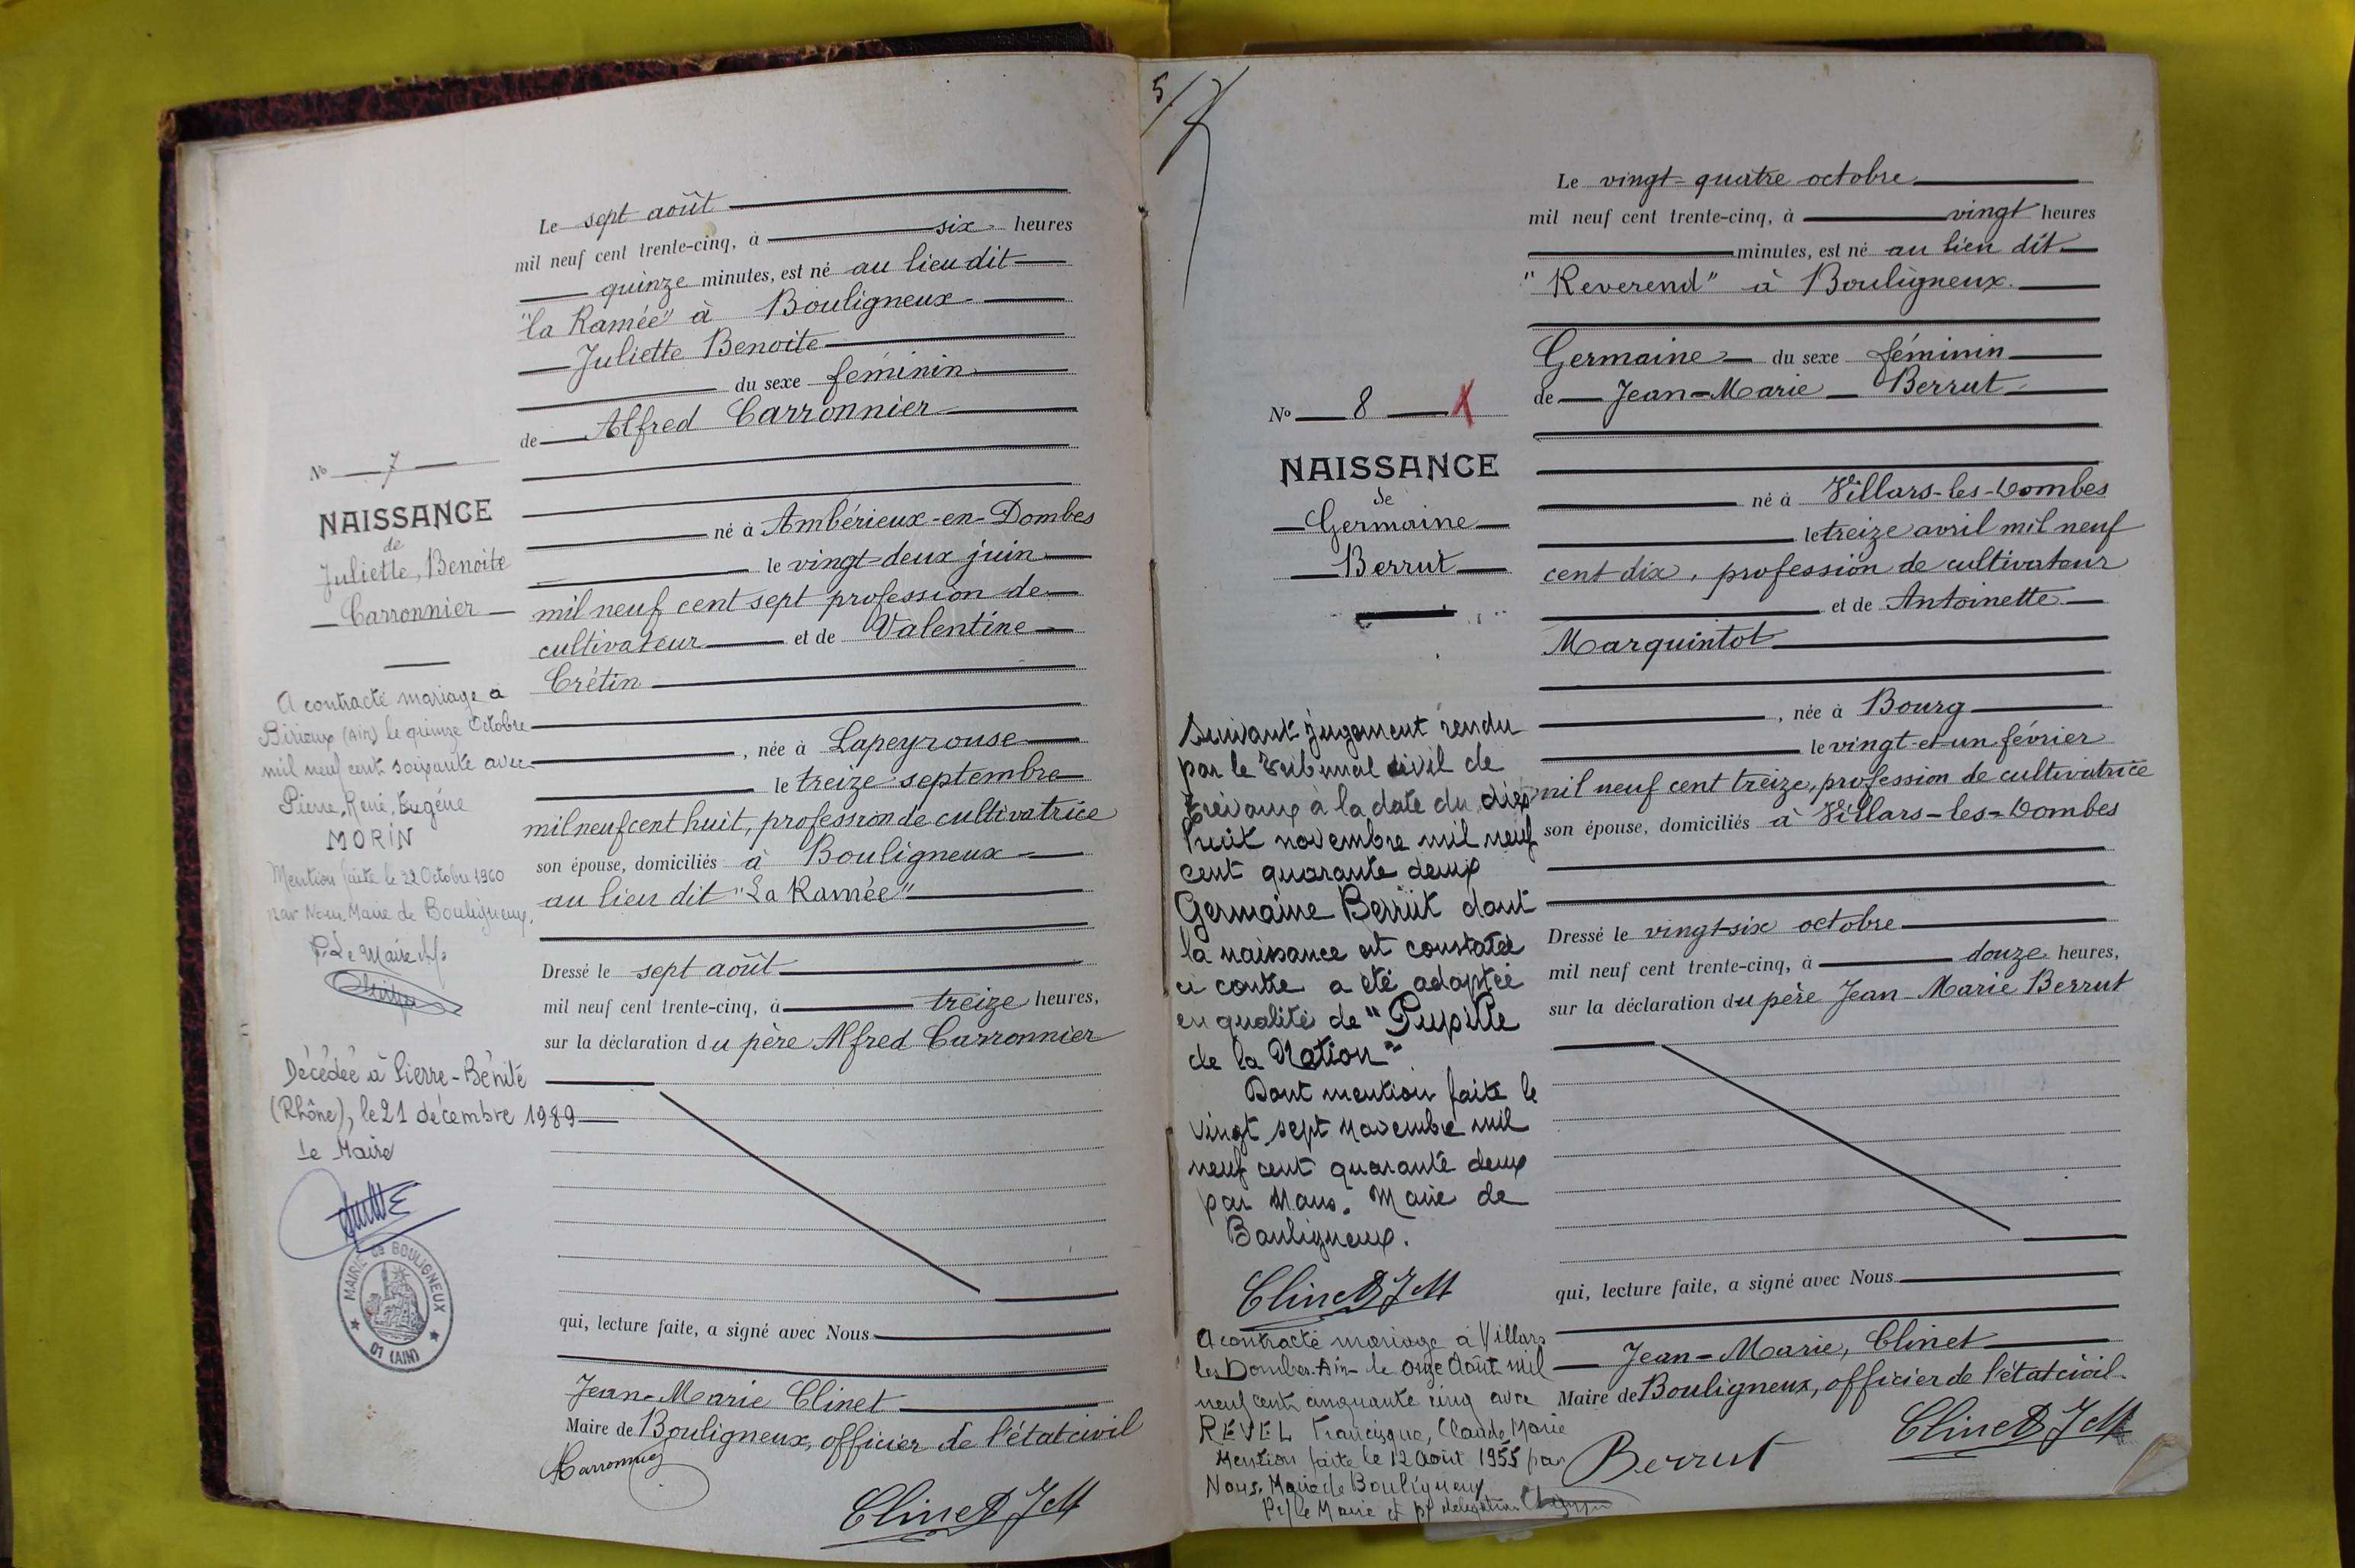 Le sept août
mil neuf cent trente-cinq, à six heures
quinze minutes, est né au lieu dit
"la Ramée" à Bouligneux
Juliette Benoite
du sexe féminin
de Alfred Carronnier
né à Ambérieux-en-Dombes
le vingt-deux juin
mil neuf cent sept profession de
cultivateur et de Valentine
Crétin
, née à Lapeyrouse
le treize septembre
mil neuf cent huit, profession de cultivatrice
son épouse, domiciliés à Bouligneux
au lieu dit "La Ramée"
Dressé le sept août
mil neuf cent trente-cinq, à treize heures,
sur la déclaration du père Alfred Carronnier
qui, lecture faite, a signé avec Nous
Jean-Marie Clinet
Maire de Bouligneux, officier de l'état civil
Carronnier
Clinet JM
No 7
NAISSANCE
de
Juliette, Benoite
Carronnier
A contracté mariage à
Birieux (Ain) le quinze Octobre
mil neuf cent soixante avec
Pierre, René, Eugéne
MORIN
Mention faite le 22 Octobre 1960
par Nous Maire de Bouligneux,
P. Le Maire
Décédée à Pierre-Bénite
(Rhône), le 21 décembre 1989
Le Maire
MAIRIE de BOULIGNEUX
01 (AIN)
5
Le vingt-quatre octobre
mil neuf cent trente-cinq, à vingt heures
minutes, est né au lieu dit
"Reverend" à Bouligneux
Germaine du sexe féminin
de Jean-Marie Berrut
né à Villars-les-Dombes
le treize avril mil neuf
cent dix, profession de cultivateur
et de Antoinette
Marquintot
, née à Bourg
le vingt-et-un février
mil neuf cent treize, profession de cultivatrice
son épouse, domiciliés à Villars-les-Dombes
Dressé le vingt-six octobre
mil neuf cent trente-cinq, à douze heures,
sur la déclaration du père Jean-Marie Berrut
qui, lecture faite, a signé avec Nous
Jean-Marie, Clinet
Maire de Bouligneux, officier de l'état civil
Clinet JM
Berrut
No 8 X
NAISSANCE
de
Germaine
Berrut
Suivant jugement rendu
par le Tribunal civil de
Trévoux à la date du dix
huit novembre mil neuf
cent quarante deux
Germaine Berrut dont
la naissance est constatée
ci contre a été adoptée
en qualité de "Pupille
de la Nation"
Dont mention faite le
vingt sept novembre mil
neuf cent quarante deux
par Nous. Maire de
Bouligneux.
Clinet JM
A contracté mariage à Villars
les Dombes Ain le onze Août mil
neuf cent cinquante cinq avec
REVEL Francisque, Claude, Marie
Mention faite le 12 Août 1955 par
Nous, Maire de Bouligneux
Pr/le Maire et pr délégation